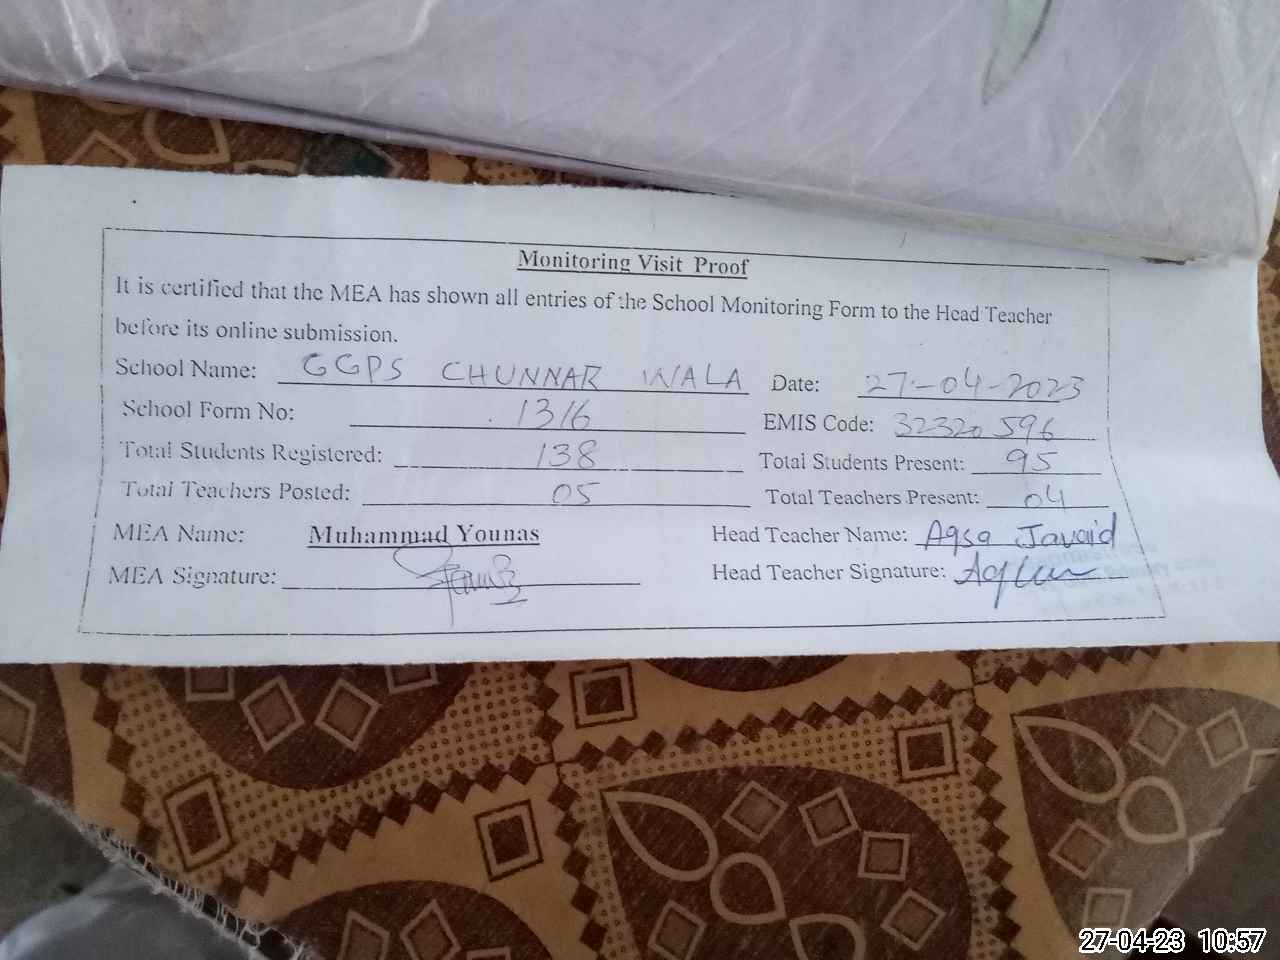 Monitoring Visit Proof
It is certified that the MEA has shown all entries of the School Monitoring Form to the Head Teacher
before its online submission.
School Name: GGPS CHUNNAR WALA Date: 27-04-2023
School Form No: 1316 EMIS Code: 32320596
Total Students Registered: 138 Total Students Present: 95
Total Teachers Posted: 05 Total Teachers Present: 04
MEA Name: Muhammad Younas Head Teacher Name: Aqsa Javaid
MEA Signature: Head Teacher Signature:
27-04-23 10:57